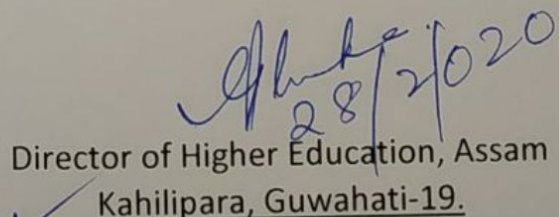 28/2/2020
Director of Higher Education, Assam
Kahilipara, Guwahati-19.